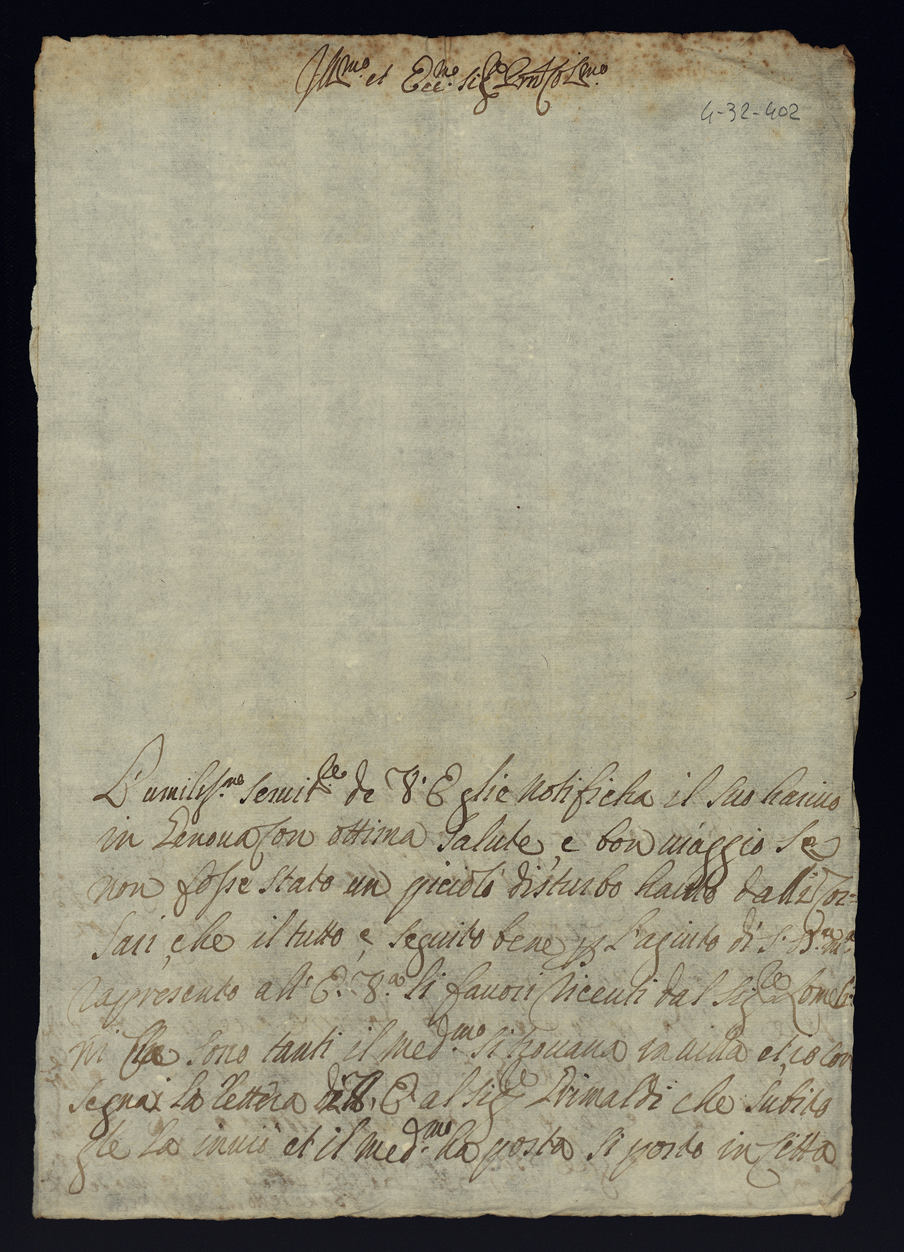 Ill.mo et Ecc.mo Sig.e
4-32-402
L'umiliss.mo Seruit.re de V. E glie notificha il suo hariuo
in Genoua Con ottima Salute e bon uiaggio Se
non fosse stato un piciolo disturbo hauto dalli Cor=
Sari che il tutto è seguito bene L'agiuto di S. D. M.a
rappresento all' E. V.a li fauori riceuti dal Sig.re Lomeli
ni Che Sono tanti il med.mo Si trouaua in uilla et io Con
Segnai La lettera di V. E al Sig.re Grimaldi che Subito
gle La inuiò et il med.mo ha posta Si portò in Città